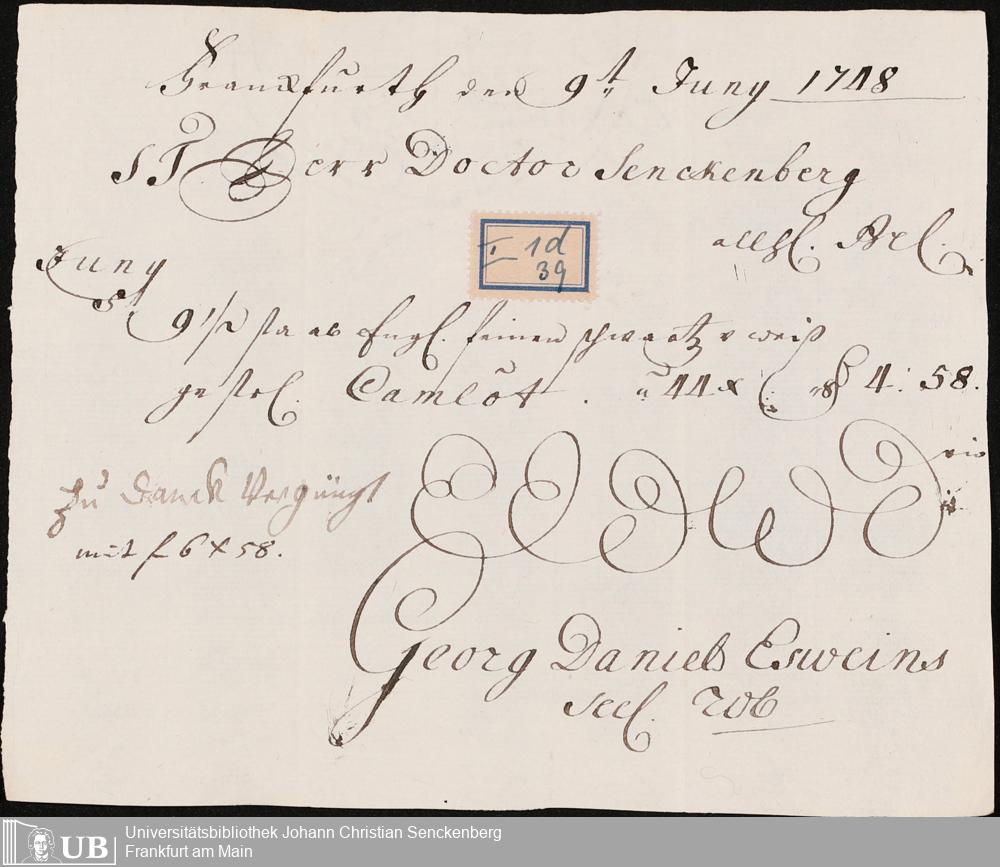 Franckfurth den 9t Juny 1748
S T Herr Doctor Senckenberg
I 1d
39
Juny
5t 9 1/2 stab Engl. feinen schwartz v weiß
gestrl. Camlot. a 44 x f 4: 58.
zu Danck Vergnügt
mit f 6 x 58.
Georg Daniel Esweins
seel. Wb
UB Universitätsbibliothek Johann Christian Senckenberg
Frankfurt am Main